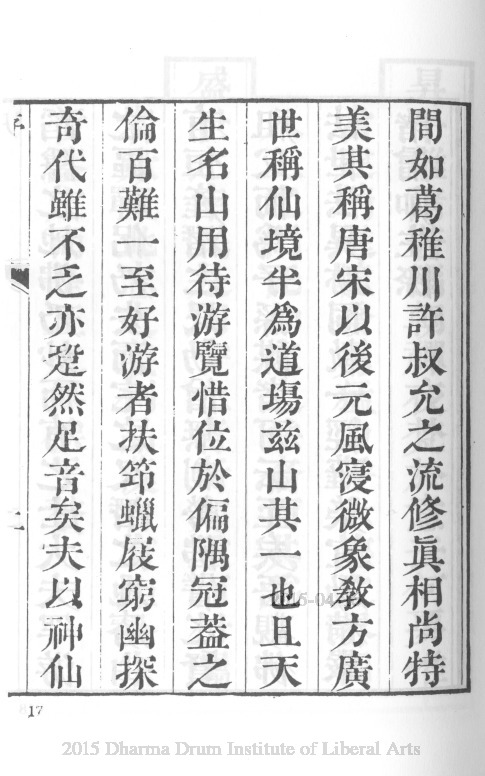 間如葛稚川許叔允之流修眞相尚特
美其稱唐宋以後元風寖微象敎方廣
世稱仙境半爲道塲兹山其一也且天
生名山用待游覽惜位於偏隅冠葢之
倫百難一至好游者扶筇蠟屐窮幽探
奇代雖不乏亦跫然足音矣夫以神仙
序
二
17
2015 Dharma Drum Institute of Liberal Arts